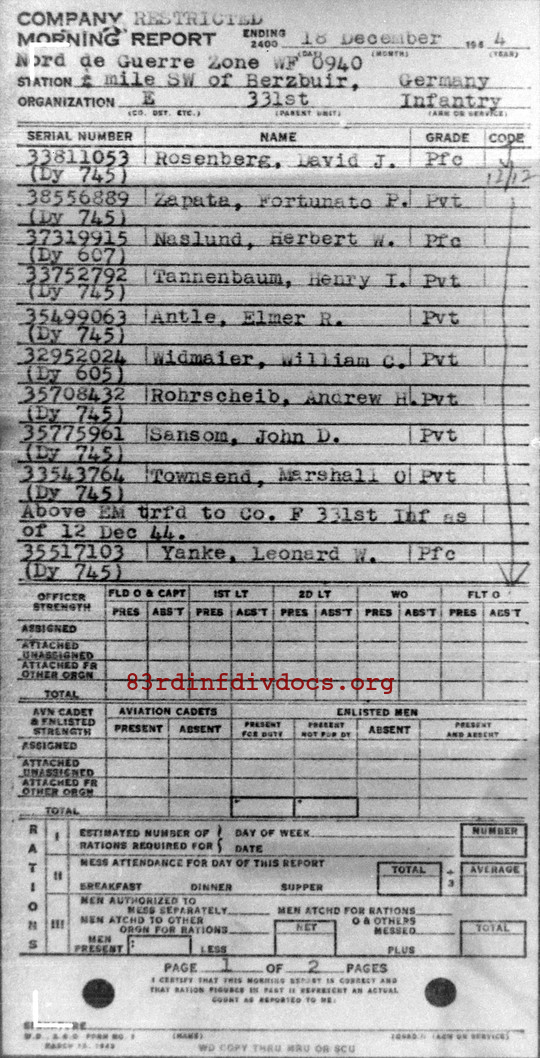 COMPANY RESTRICTED
MORNING REPORT ENDING 2400 18 December 194 4
(DAY) (MONTH) (YEAR)
Nord de Guerre Zone WF 0940
STATION ½ mile SW of Berzbuir, Germany
ORGANIZATION E 331st Infantry
(CO. DET. ETC.) (PARENT UNIT) (ARM OR SERVICE)
SERIAL NUMBER NAME GRADE CODE
33811053 Rosenberg, David J. Pfc
(Dy 745) 12/12
38556889 Zapata, Fortunato P. Pvt
(Dy 745)
37319915 Naslund, Herbert W. Pfc
(Dy 607)
33752792 Tannenbaum, Henry I. Pvt
(Dy 745)
35499063 Antle, Elmer R. Pvt
(Dy 745)
32952024 Widmaier, William C. Pvt
(Dy 605)
35708432 Rohrscheib, Andrew H. Pvt
(Dy 745)
35775961 Sansom, John D. Pvt
(Dy 745)
33543764 Townsend, Marshall O Pvt
(Dy 745)
Above EM trfd to Co. F 331st Inf as
of 12 Dec 44.
35517103 Yanke, Leonard W. Pfc
(Dy 745)
OFFICER STRENGTH FLD O & CAPT 1ST LT 2D LT WO FLT O
PRES ABS'T PRES ABS'T PRES ABS'T PRES ABS'T PRES ABS'T
ASSIGNED
ATTACHED UNASSIGNED
ATTACHED FR OTHER ORGN
TOTAL
83rdinfdivdocs.org
AVN CADET & ENLISTED STRENGTH AVIATION CADETS ENLISTED MEN
PRESENT ABSENT PRESENT FOR DUTY PRESENT NOT FOR DY ABSENT PRESENT AND ABSENT
ASSIGNED
ATTACHED UNASSIGNED
ATTACHED FR OTHER ORGN
TOTAL
RATIONS
I ESTIMATED NUMBER OF DAY OF WEEK NUMBER
RATIONS REQUIRED FOR DATE
II MESS ATTENDANCE FOR DAY OF THIS REPORT TOTAL ÷ 3 AVERAGE
BREAKFAST DINNER SUPPER
III MEN AUTHORIZED TO MESS SEPARATELY MEN ATCHD FOR RATIONS
MEN ATCHD TO OTHER ORGN FOR RATIONS NET O & OTHERS MESSED TOTAL
MEN PRESENT LESS PLUS
PAGE 1 OF 2 PAGES
I CERTIFY THAT THIS MORNING REPORT IS CORRECT AND
THAT RATION FIGURES IN PART II REPRESENT AN ACTUAL
COUNT AS REPORTED TO ME.
(NAME) (GRADE) (ARM OR SERVICE)
W.D., A.G.O. FORM NO. 1
WD COPY THRU MRU OR SCU